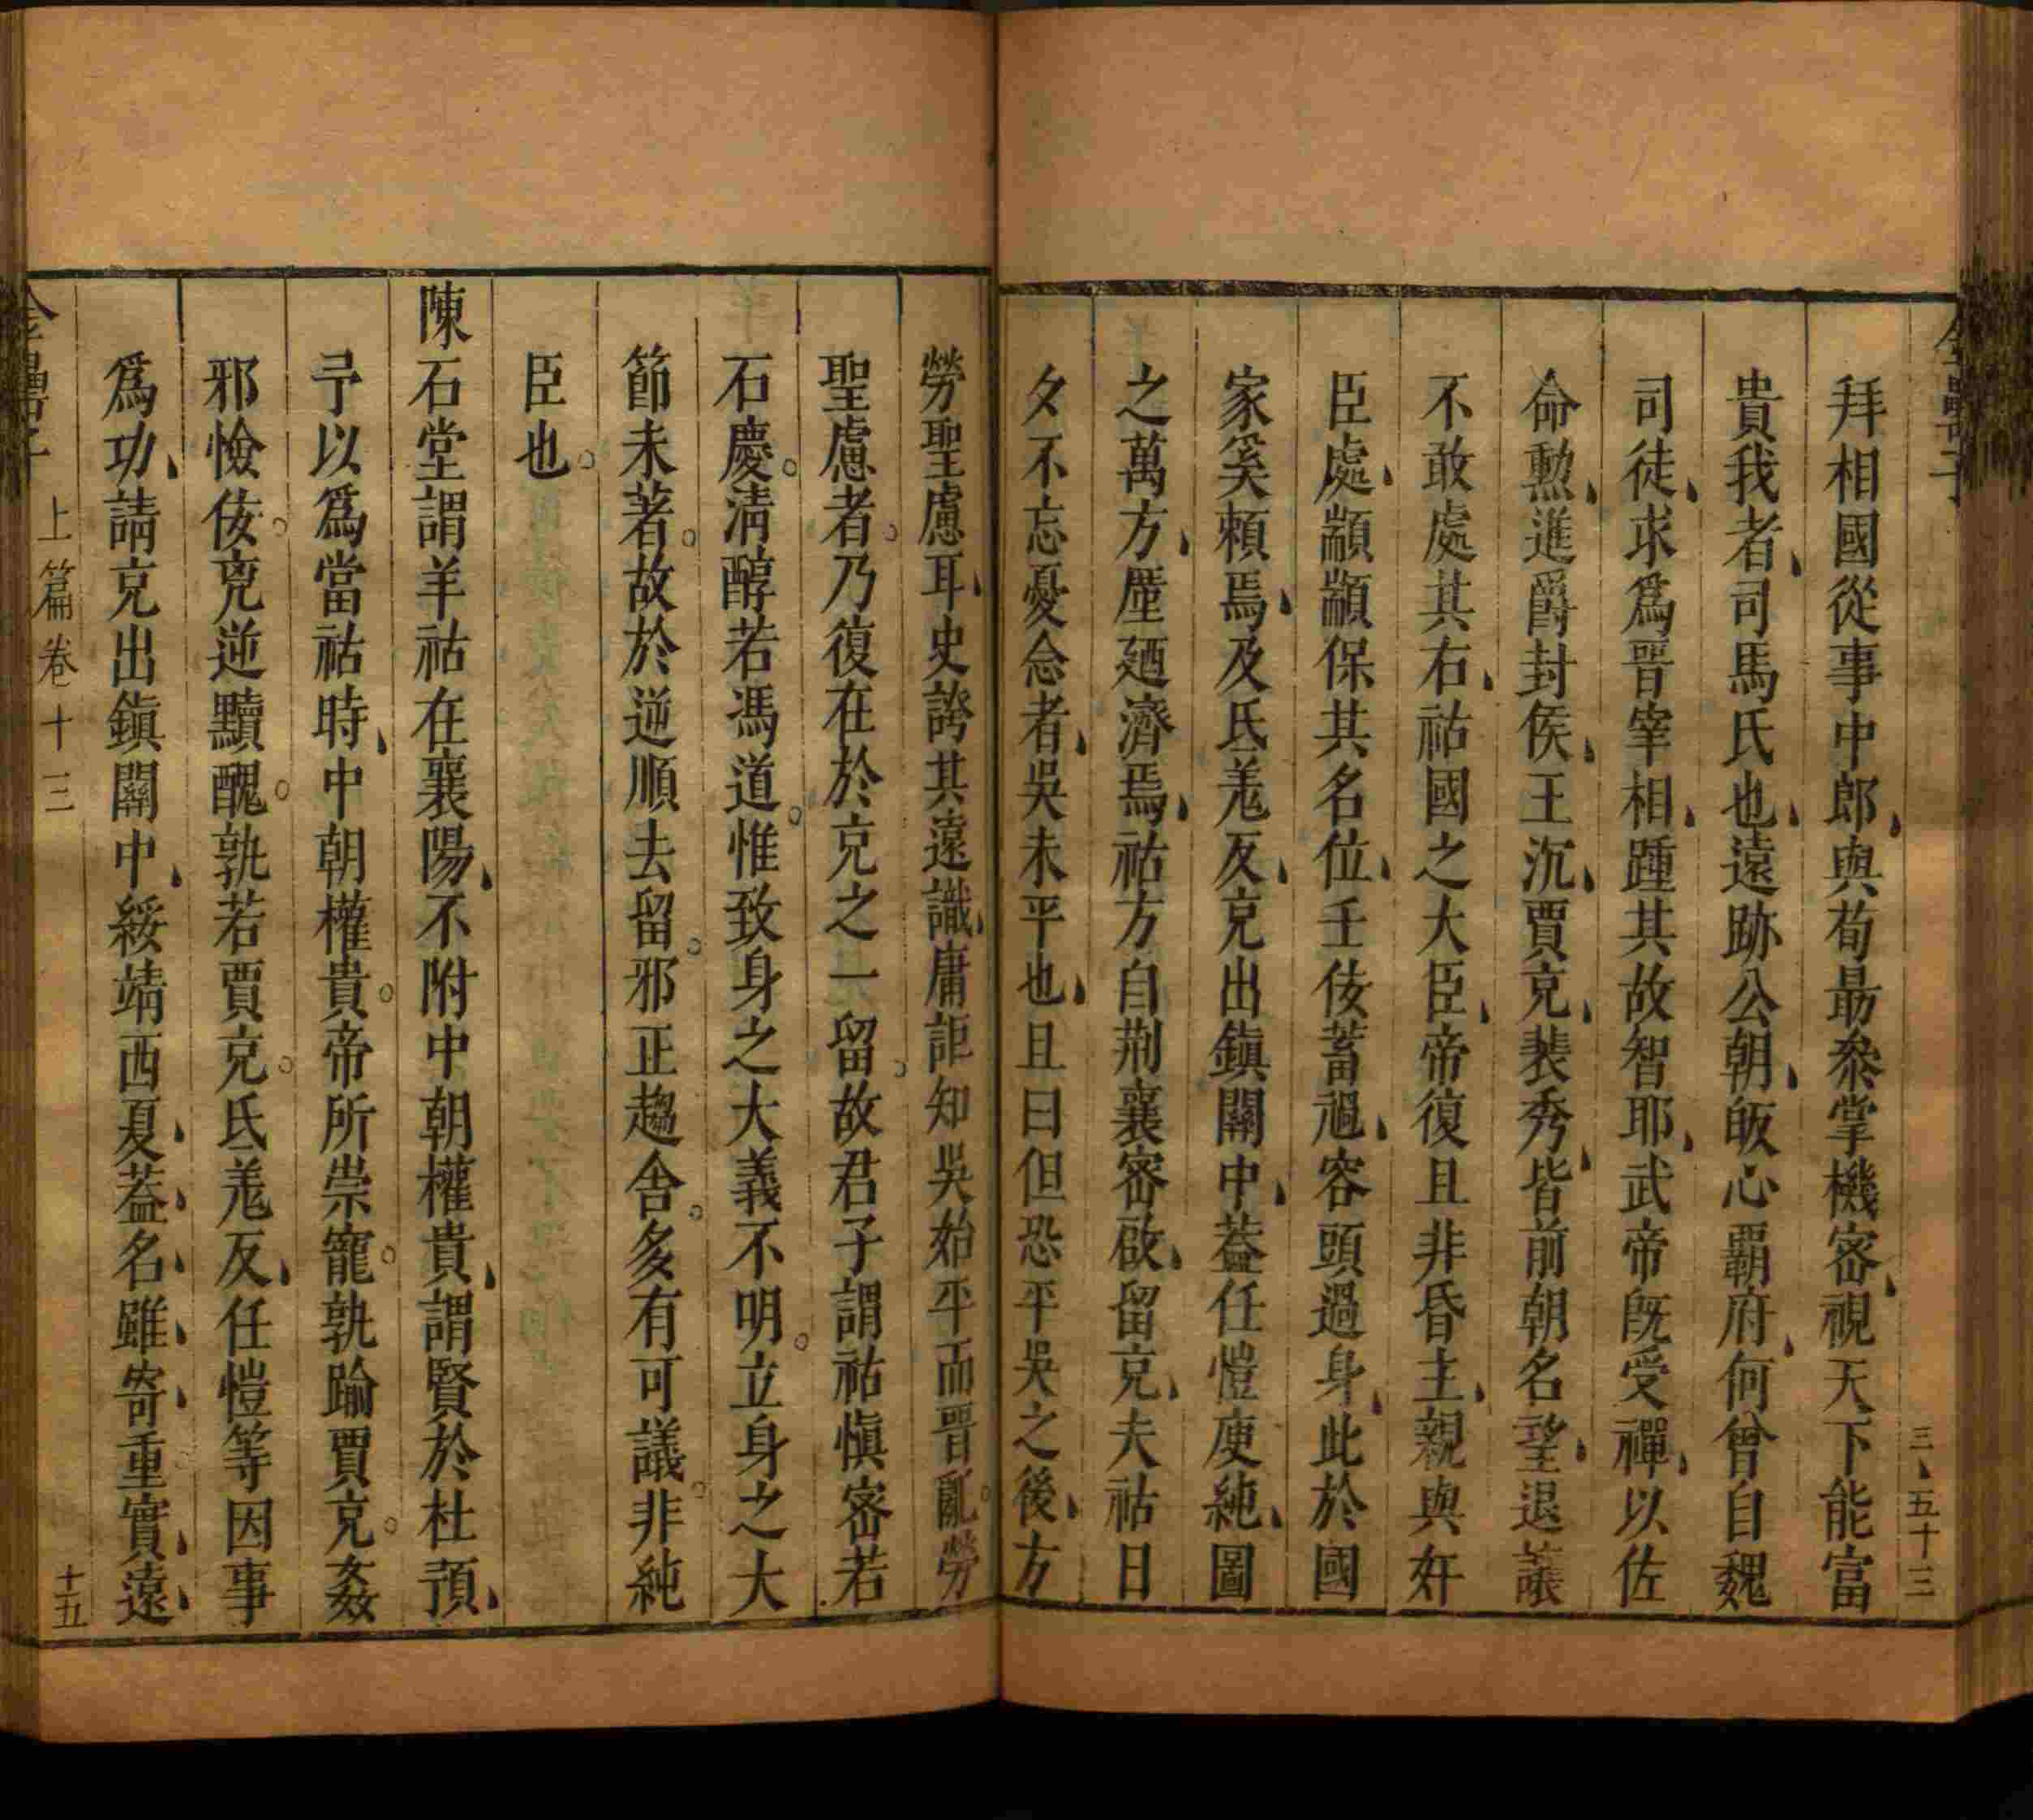 三、五十三
拜相國從事中郎、與荀勗叅掌機宻、視天下能富
貴我者、司馬氏也、遠跡公朝、皈心覇府、何曾自魏
司徒、求爲晋宰相、踵其故智耶、武帝旣受禪、以佐
命勲、進爵封侯、王沉、賈充、裴秀、皆前朝名望、退讓
不敢處其右、祜國之大臣、帝復且非昏主、親與奸
臣處、顓顓保其名位、壬佞蓄禍、容頭過身、此於國
家奚頼焉、及氐羗反、充出鎮關中、蓋任愷庾純、圖
之萬方、厪廼濟焉、祜方自荆襄宻啟、留充、夫祜日
夕不忘憂念者、吳未平也、且曰但恐平吳之後、方
勞聖慮耳、史誇其遠識、庸詎知吳始平而晋亂。勞
聖慮者。乃復在於充之一留。故君子謂祜愼宻若
石慶。淸醇若馮道。惟致身之大義不明。立身之大
節未著。故於逆順去留。邪正趨舎。多有可議。非純
臣也。
陳石堂謂羊祜在襄陽、不附中朝權貴、謂賢於杜預、
予以爲當祜時、中朝權貴。帝所崇寵。孰踰賈充。姦
邪憸佞。兇逆黷醜。孰若賈充。氐羗反、任愷等因事
爲功、請充出鎭關中、綏靖西夏、蓋名、雖、寄、重實、遠、
上篇卷十三
十五